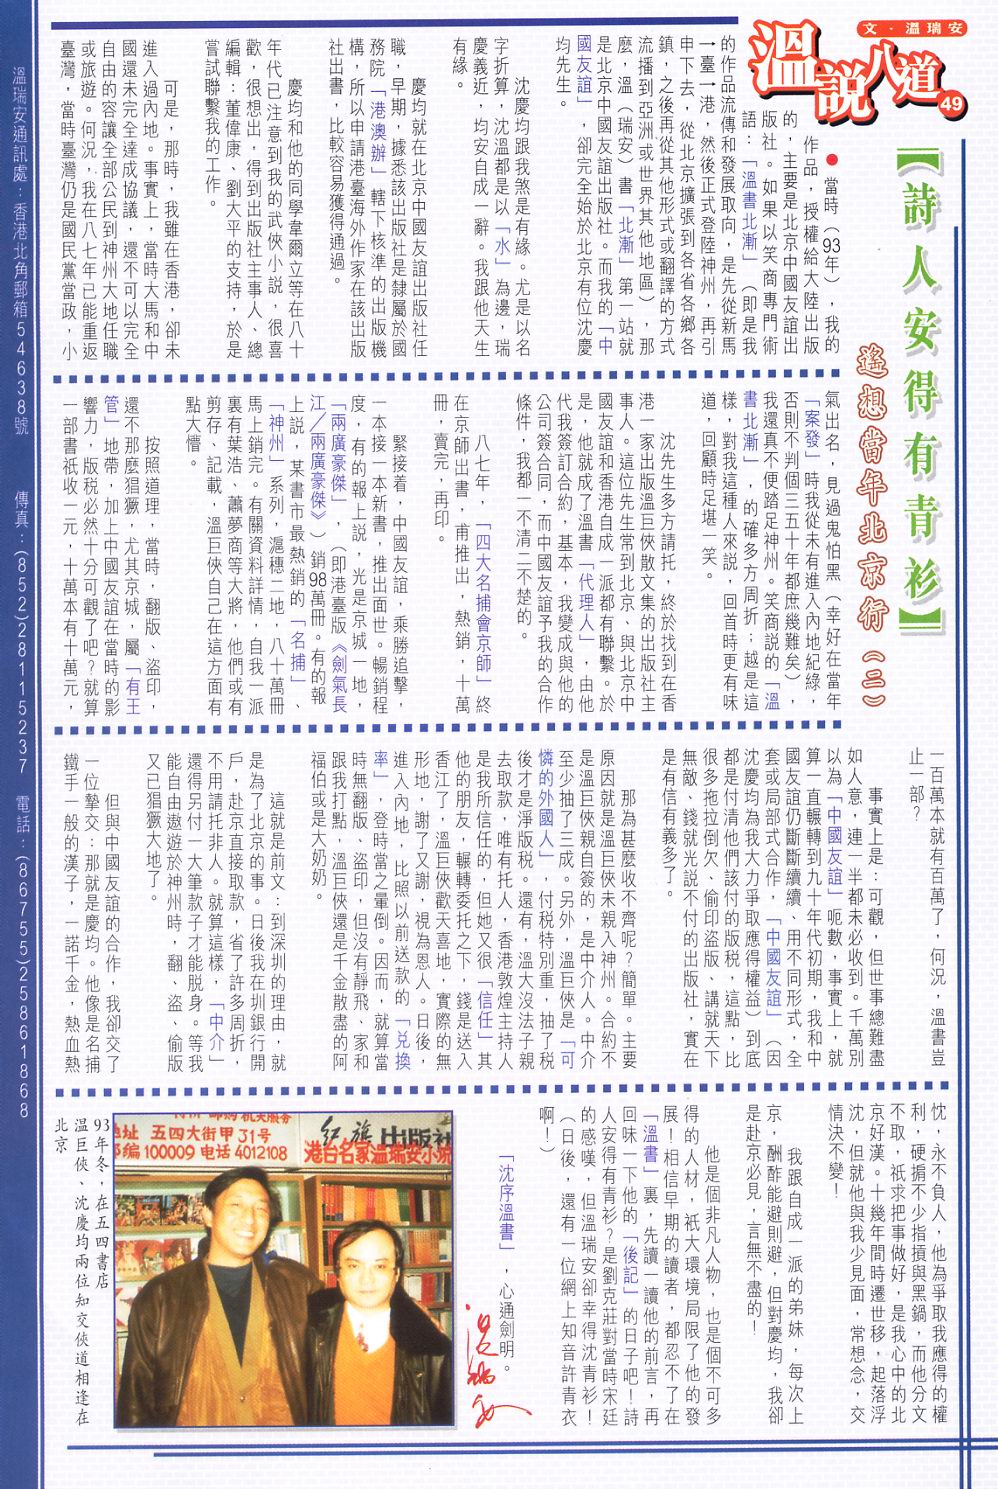 文‧溫瑞安
溫說八道
49
【詩人安得有青衫】
遙想當年北京行（二）
●當時（93年），我的
作品，授權給大陸出版
的，主要是北京中國友誼出
版社。如果以笑商專門術
語：「溫書北漸」（即是我
的作品流傳和發展取向，是先從新馬
→臺→港，然後正式登陸神州，再引
申下去，從北京擴張到各省各鄉各
鎮，之後再從其他形式或翻譯的方式
流播到亞洲或世界其他地區），那
麼，溫（瑞安）書「北漸」第一站就
是北京中國友誼出版社。而我的「中
國友誼」，卻完全始於北京有位沈慶
均先生。
沈慶均跟我煞是有緣。尤是以名
字折算，沈溫都是以「水」為邊，瑞
慶義近，均安自成一辭。我跟他天生
有緣。
慶均就在北京中國友誼出版社任
職，早期，據悉該出版社是隸屬於國
務院「港澳辦」轄下核準的出版機
構，所以申請港臺海外作家在該出版
社出書，比較容易獲得通過。
慶均和他的同學韋爾立等在八十
年代已注意到我的武俠小說，很喜
歡，很想出，得到出版社主事人、總
編輯：董偉康、劉大平的支持，於是
嘗試聯繫我的工作。
可是，那時，我雖在香港，卻未
進入過內地。事實上，當時大馬和中
國還未完全達成協議，還不可以完全
自由的容讓全部公民到神州大地任職
或旅遊。何況，我在八七年已能重返
臺灣，當時臺灣仍是國民黨當政，小
氣出名，見過鬼怕黑（幸好在當年
「案發」時我從未有進入內地紀綠，
否則不判個三五十年都庶幾難矣），
我還真不便踏足神州。笑商說的「溫
書北漸」，的確多方周折；越是這
樣，對我這種人來說，回首時更有味
道，回顧時足堪一笑。
沈先生多方請托，終於找到在香
港一家出版溫巨俠散文集的出版社主
事人。這位先生常到北京、與北京中
國友誼和香港自成一派都有聯繫。於
是，他就成了溫書「代理人」，由他
代我簽訂合約，基本，我變成與他的
公司簽合同，而中國友誼予我的合作
條件，我都一不清二不楚的。
八七年，「四大名捕會京師」終
在京師出書，甫推出，熱銷，十萬
冊，賣完，再印。
緊接着，中國友誼，乘勝追擊，
一本接一本新書，推出面世。暢銷程
度，有的報上說，光是京城一地，
「兩廣豪傑」，（即港臺版《劍氣長
江／兩廣豪傑》）銷98萬冊。有的報
上說，某書市最熱銷的「名捕」、
「神州」系列，滬穗二地，八十萬冊
馬上銷完。有關資料詳情，自我一派
裏有葉浩、蕭夢商等大將，他們或有
剪存、記載，溫巨俠自己在這方面有
點大懵。
按照道理，當時，翻版、盜印，
還不那麼猖獗，尤其京城，屬「有王
管」地帶，加上中國友誼在當時的影
響力，版税必然十分可觀了吧？就算
一部書祇收一元，十萬本有十萬元，
一百萬本就有百萬了，何況，溫書豈
止一部？
事實上是：可觀，但世事總難盡
如人意，連一半都未必收到。千萬別
以為「中國友誼」呃數，事實上，就
算一直輾轉到九十年代初期，我和中
國友誼仍斷斷續續、用不同形式，全
套或局部式合作，「中國友誼」（因
沈慶均為我大力爭取應得權益）到底
都是付清他們該付的版税，這點，比
很多拖拉倒欠、偷印盜版、講就天下
無敵、錢就光說不付的出版社，實在
是有信有義多了。
那為甚麼收不齊呢？簡單。主要
原因就是溫巨俠未親入神州。合約不
是溫巨俠親自簽的，是中介人。中介
至少抽了三成。另外，溫巨俠是「可
憐的外國人」，付税特別重，抽了税
後才是淨版税。還有，溫大沒法子親
去取款，唯有托人，香港敦煌主持人
是我所信任的，但她又很「信任」其
他的朋友，輾轉委托之下，錢是送入
香江了，溫巨俠歡天喜地，實際的無
形地，謝了又謝，視為恩人。日後，
進入內地，比照以前送款的「兑換
率」，登時當之暈倒。因而，就算當
時無翻版、盜印，但沒有靜飛、家和
跟我打點，溫巨俠還是千金散盡的阿
福伯或是大奶奶。
這就是前文：到深圳的理由，就
是為了北京的事。日後我在圳銀行開
戶，赴京直接取款，省了許多周折，
不用請托非人。就算這樣，「中介」
還得另付一大筆款子才能脫身。等我
能自由遨遊於神州時，翻、盜、偷版
又已猖獗大地了。
但與中國友誼的合作，我卻交了
一位摯交：那就是慶均。他像是名捕
鐵手一般的漢子，一諾千金，熱血熱
忱，永不負人，他為爭取我應得的權
利，硬揹不少指摃與黑鍋，而他分文
不取，祇求把事做好，是我心中的北
京好漢。十幾年間時遷世移，起落浮
沈，但就他與我少見面，常想念，交
情決不變！
我跟自成一派的弟妹，每次上
京，酬酢能避則避，但對慶均，我卻
是赴京必見，言無不盡的！
他是個非凡人物，也是個不可多
得的人材，祇大環境局限了他的發
展！相信早期的讀者，都忍不了在
「溫書」裏，先讀一讀他的前言，再
回味一下他的「後記」的日子吧！詩
人安得有青衫？是劉克莊對當時宋廷
的感嘆，但溫瑞安卻幸得沈青衫！
（日後，還有一位網上知音許青衣
啊！）
「沈序溫書」，心通劍明。
溫瑞安
地址 五四大街甲31号
邮编 100009 电话 4012108
红旗出版社
港台名家溫瑞安小
93年冬，在五四書店
溫巨俠、沈慶均兩位知交俠道相逢在
北京
溫瑞安通訊處：香港北角郵箱54638號 傳真：(852)28115237 電話：(86755)25861868